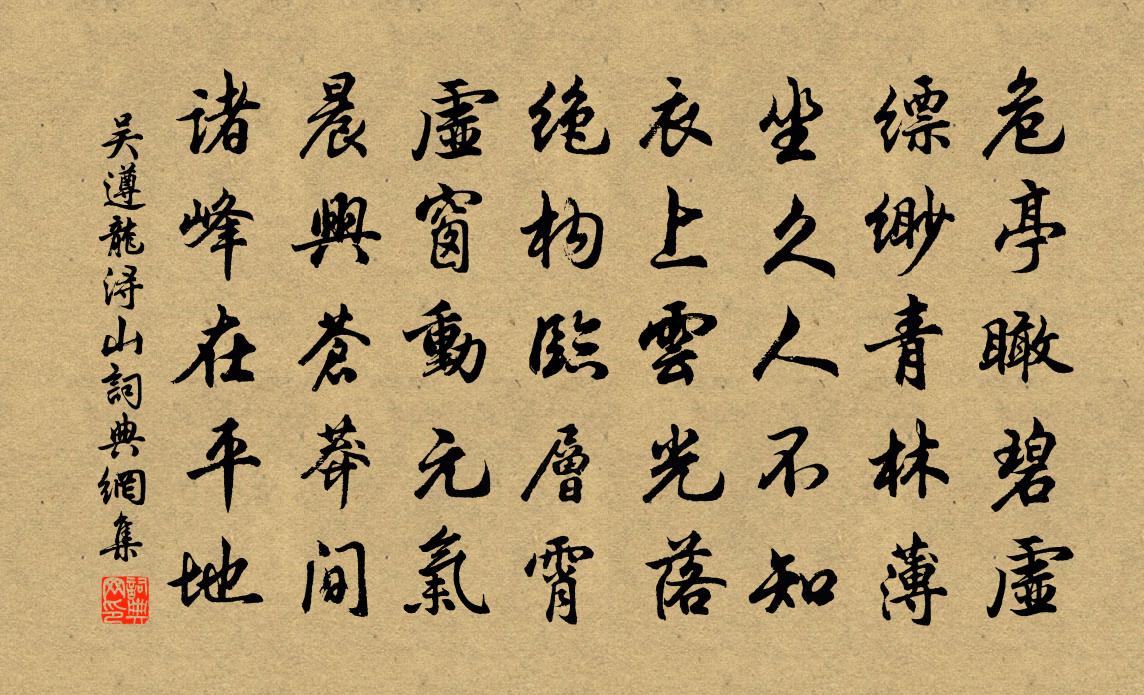 危亭瞰碧虛
缥缈青林薄
坐久人不知
衣上雲光落
绝构臨層霄
虛窗動元氣
晨興蒼莽间
诸峰在平地
吴遵龍浔山詞典網集
詞典网印